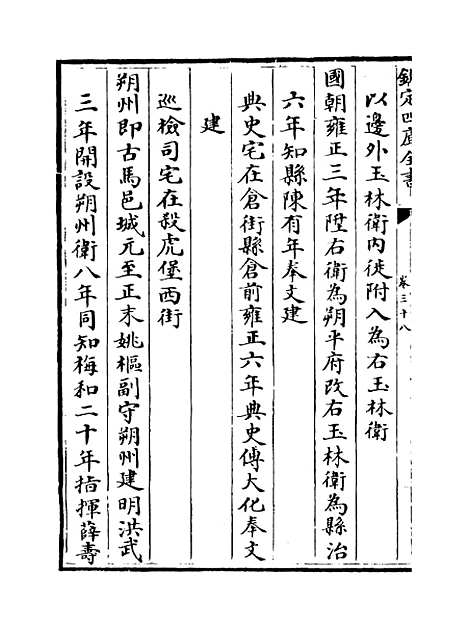 欽定四庫全書
卷三十八
以邊外玉林衛內徙附入為右玉林衛
國朝雍正三年陞右衛為朔平府改右玉林衛為縣治
六年知縣陳有年奉文建
典史宅在倉街縣倉前雍正六年典史傅大化奉文
建
巡檢司宅在殺虎堡西街
朔州即古馬邑城元至正末姚樞副守朔州建明洪武
三年開設朔州衛八年同知梅和二十年指揮薛壽